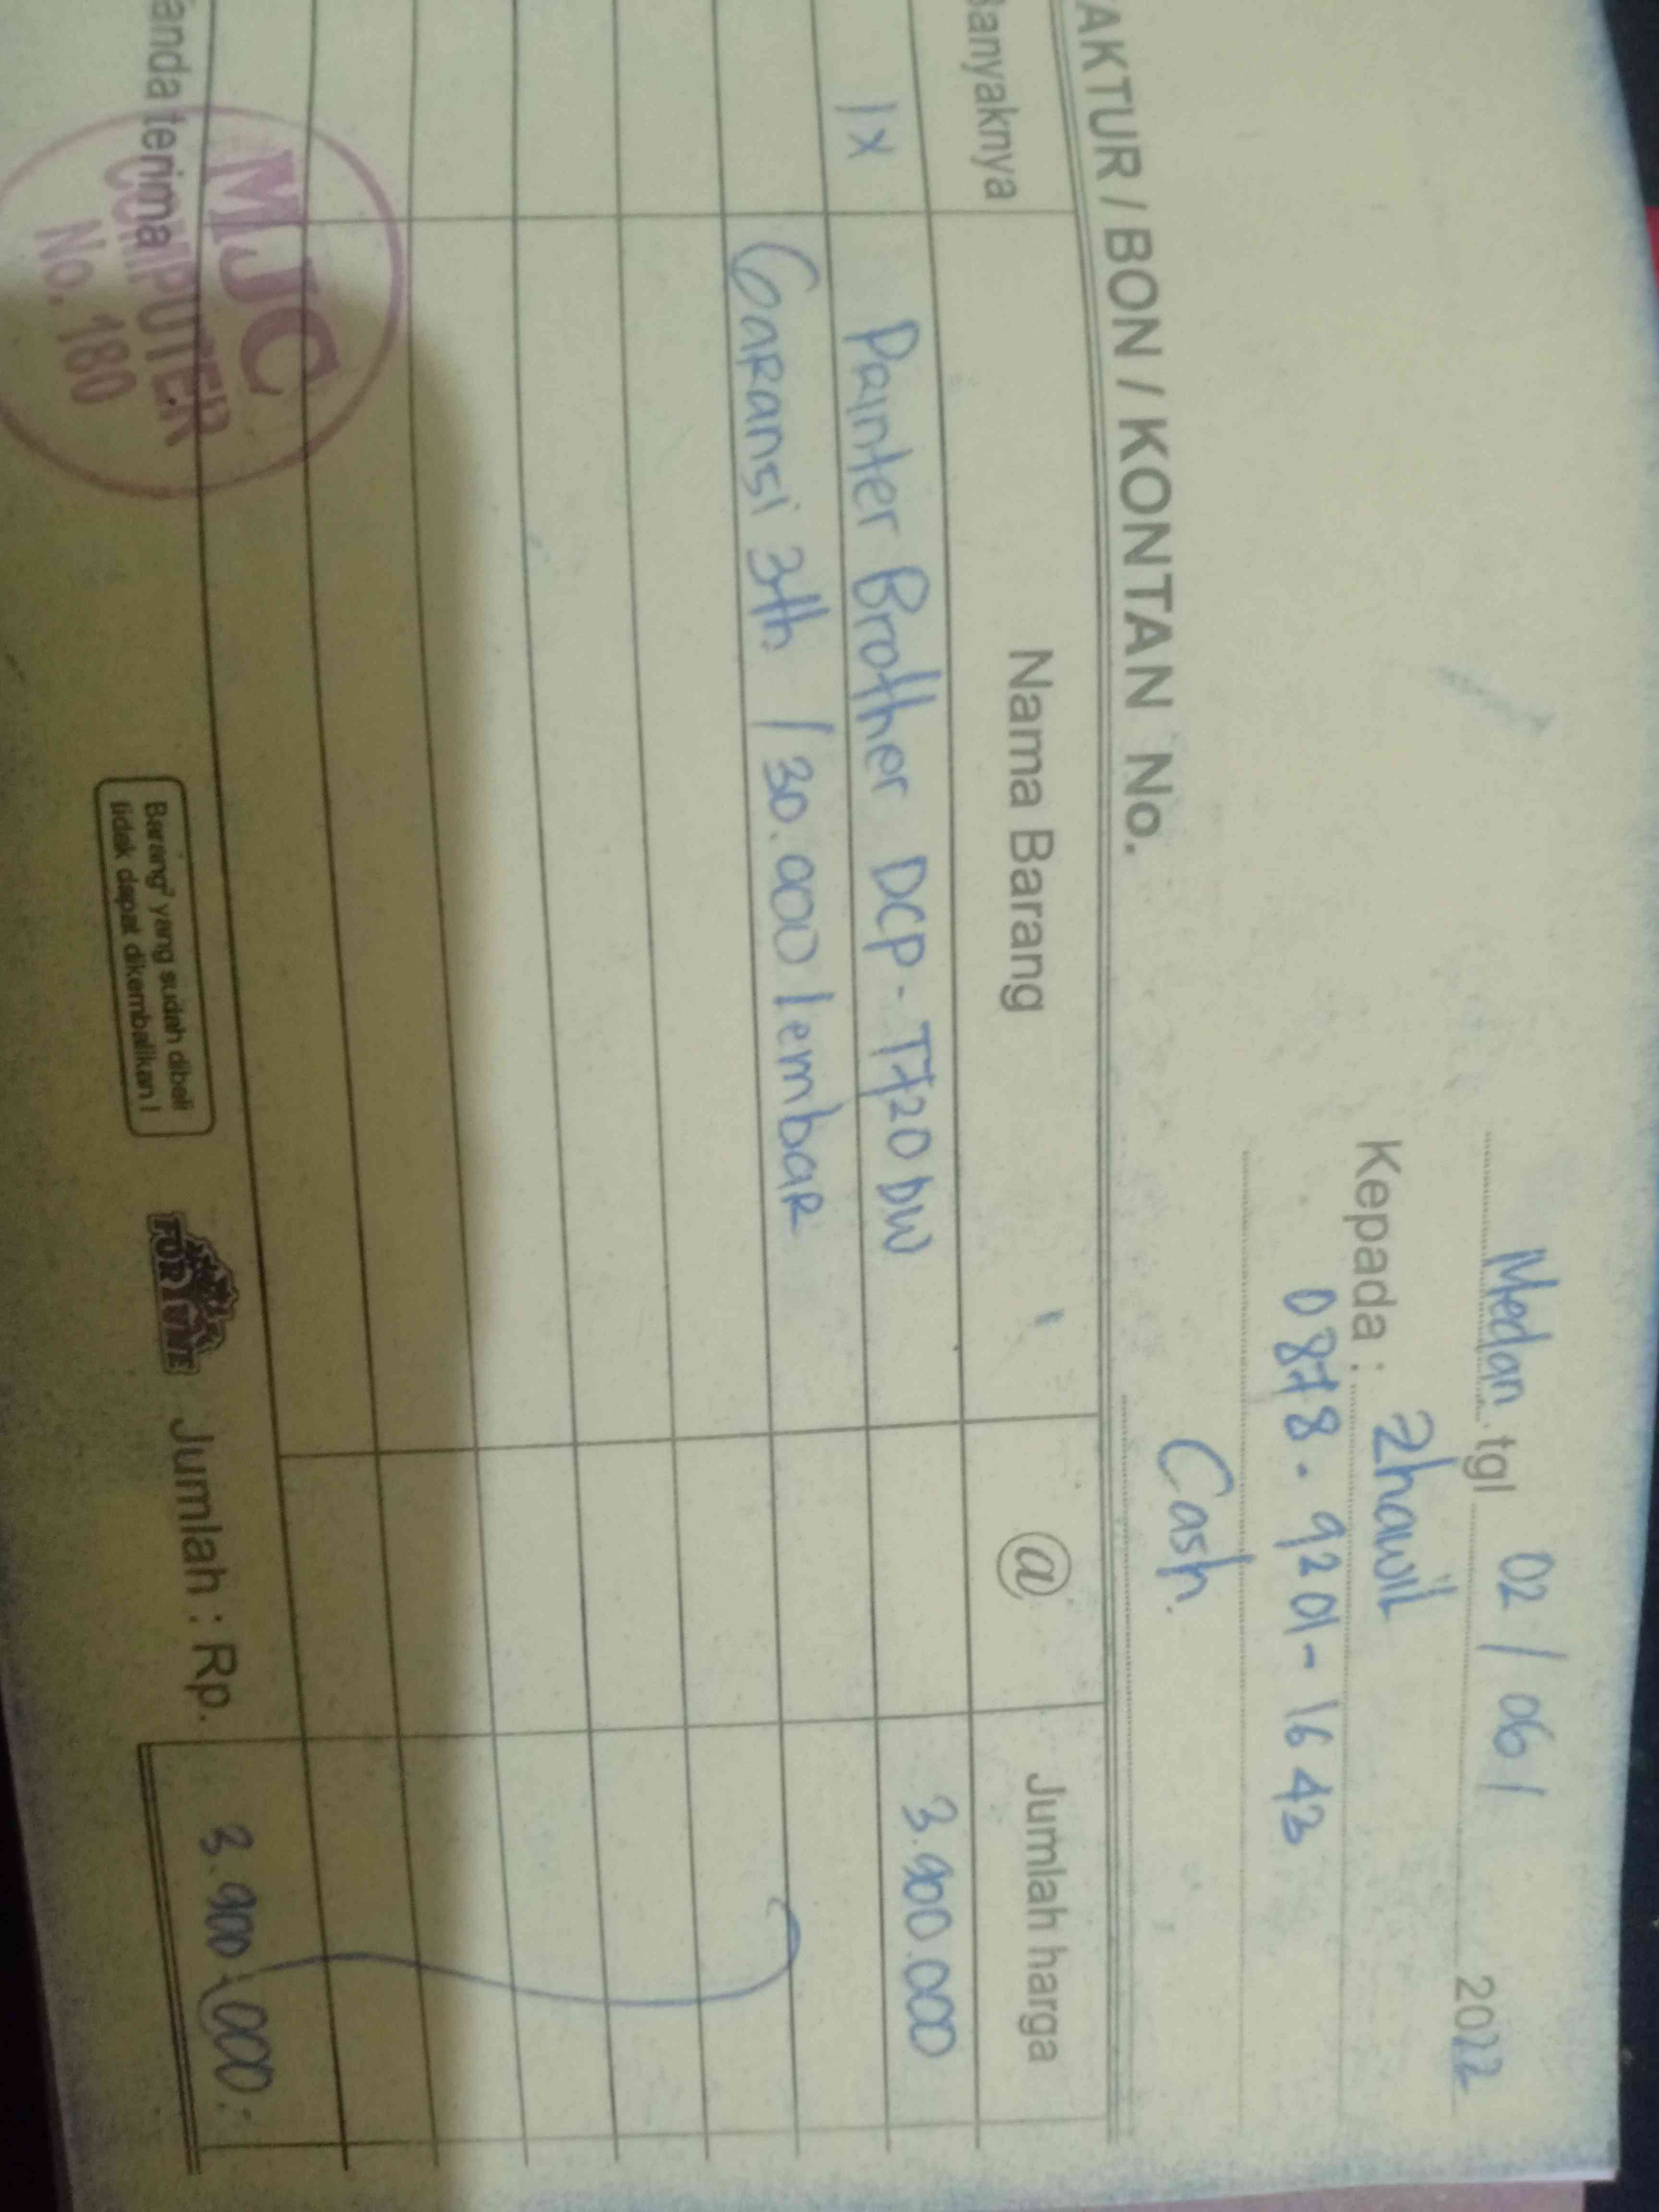 Medan, tgl 02 / 06 / 2022
Kepada : Zhawil
0878. 9201-1643
Cash.
AKTUR / BON / KONTAN No.
Banyaknya Nama Barang @ Jumlah harga
1x Printer Brother DCP-T720DW 3.900.000
Garansi 3th / 30.000 lembar
anda terima
MJC
COMPUTER
No. 180
Barang² yang sudah dibeli
tidak dapat dikembalikan !
FORTUNE
Jumlah : Rp. 3.900.000.-